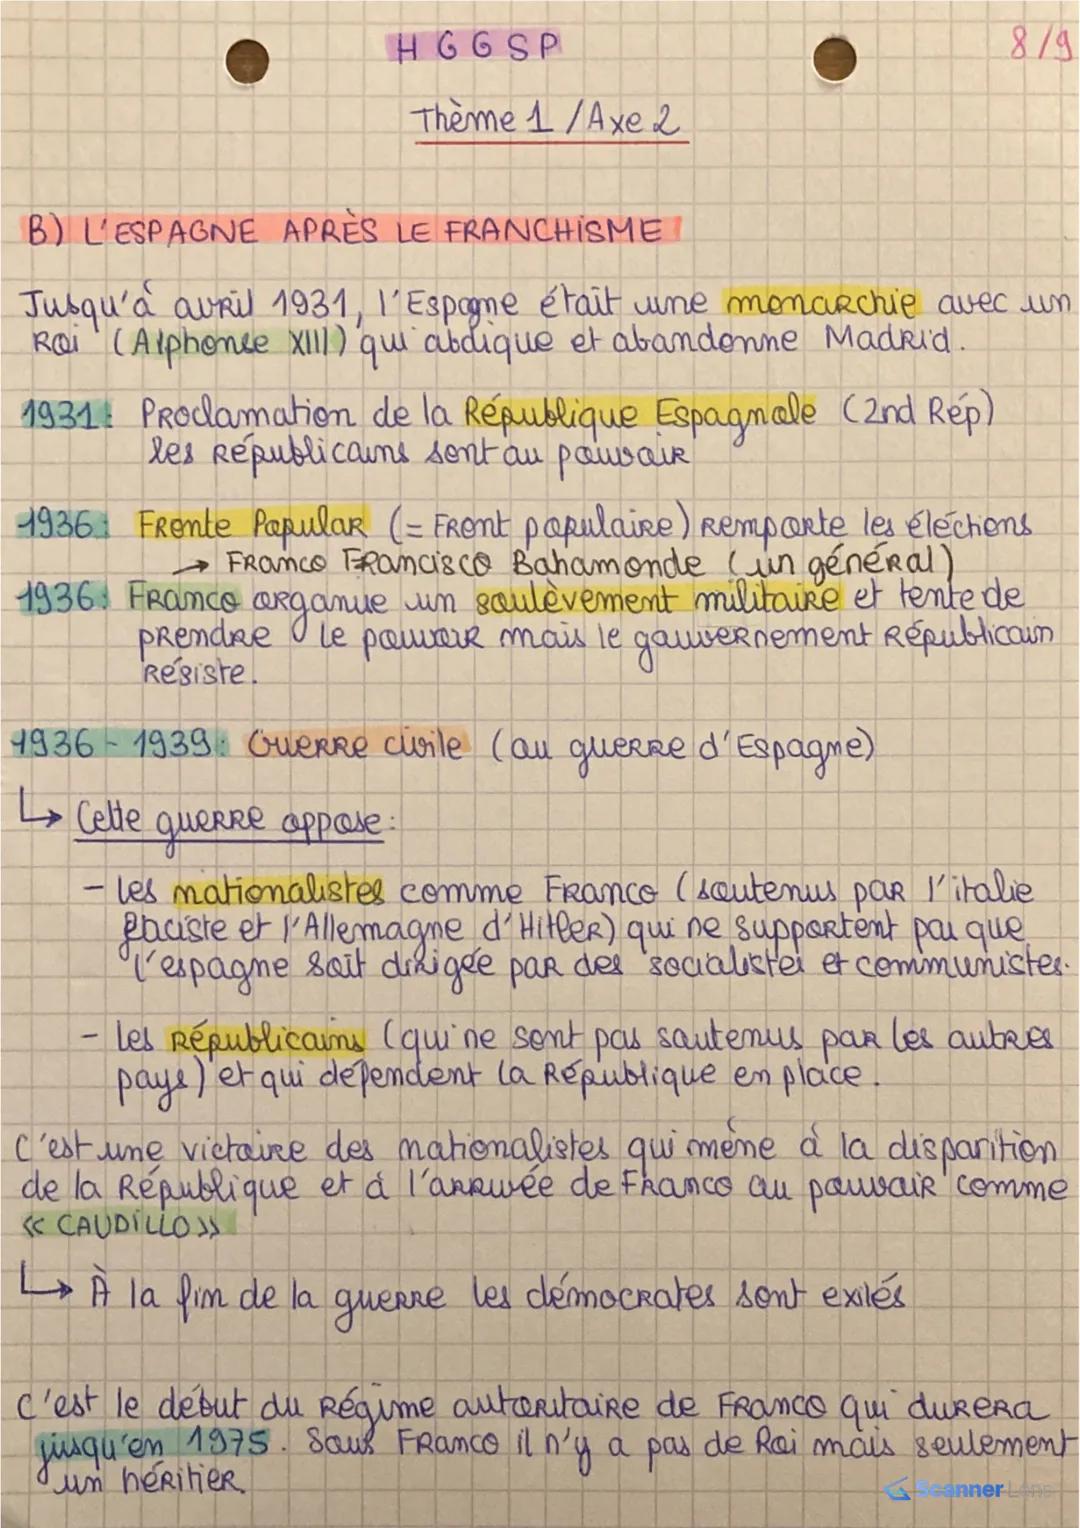 HGGSP
8/9
Thème 1 / Axe 2
B) L'ESPAGNE APRÈS LE FRANCHISME
Jusqu'à avril 1931, l'Espagne était une monarchie avec un
Roi (Alphonse XIII) qui abdique et abandonne Madrid.
1931: Proclamation de la République Espagnole (2nd Rép)
les républicains sont au pouvoir
1936: Frente Popular (= Front populaire) remporte les éléctions
→ Franco Francisco Bahamonde (un général)
1936: Franco organise un soulèvement militaire et tente de
prendre le pouvoir mais le gouvernement Républicain
résiste.
1936 - 1939: Guerre civile (ou guerre d'Espagne)
↳ Cette guerre oppose:
- les nationalistes comme Franco (soutenus par l'italie
faciste et l'Allemagne d'Hitler) qui ne supportent pas que
l'espagne soit dirigée par des socialistes et communistes.
- les républicains (qui ne sont pas soutenus par les autres
pays) et qui dépendent la République en place.
C'est une victoire des nationalistes qui mène à la disparition
de la République et à l'arrivée de Franco au pouvoir comme
« CAUDILLO »
↳ À la fin de la guerre les démocrates sont exilés
C'est le début du Régime autoritaire de Franco qui durera
jusqu'en 1975. Sous Franco il n'y a pas de Roi mais seulement
un héritier.
Scanner Lens